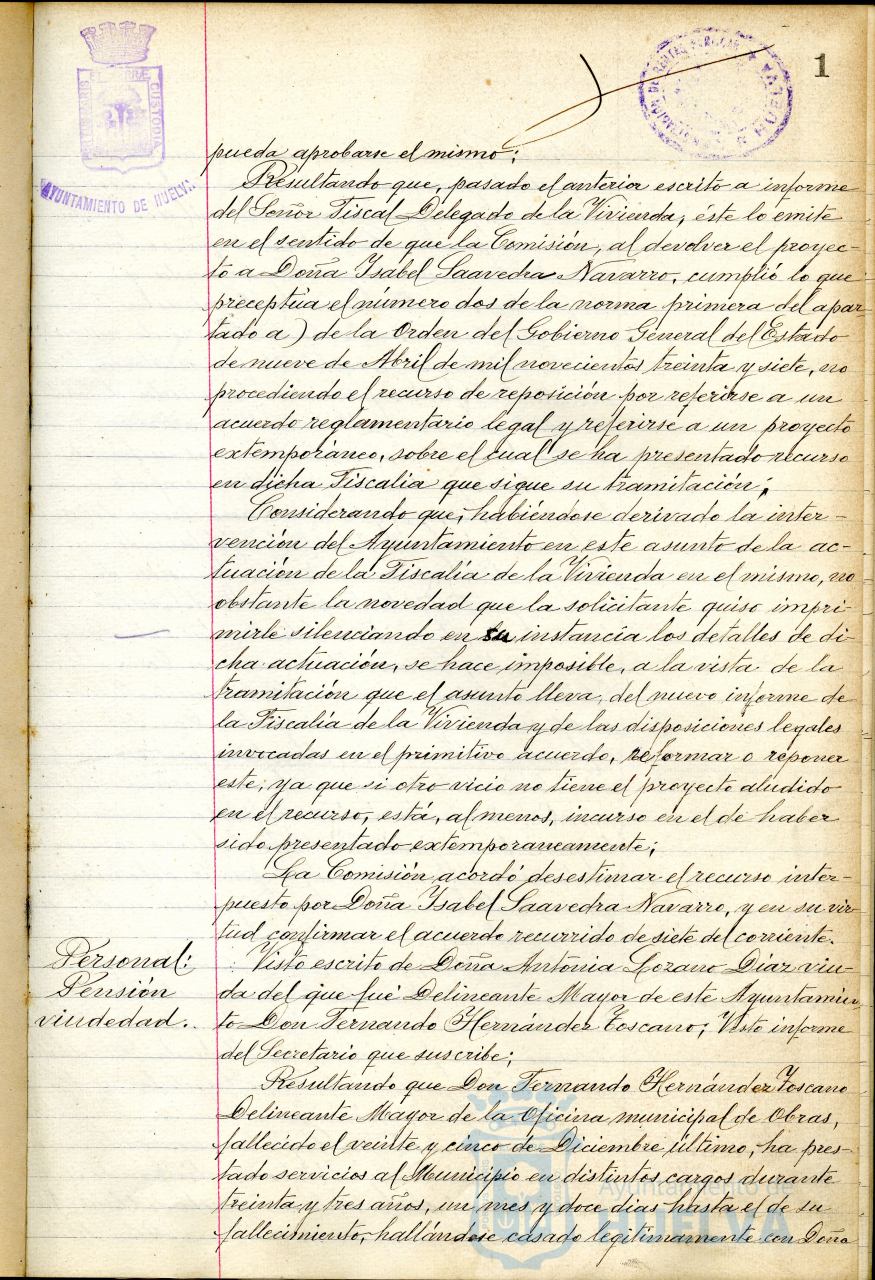 1
AYUNTAMIENTO DE HUELVA
pueda aprobarse el mismo;
Resultando que, pasado el anterior escrito a informe
del Señor Fiscal Delegado de la Vivienda, éste lo emite
en el sentido de que la Comisión, al devolver el proyec-
to a Doña Isabel Saavedra Navarro, cumplió lo que
preceptúa el número dos de la norma primera del apar-
tado a) de la Orden del Gobierno General del Estado
de nueve de Abril de mil novecientos treinta y siete, no
procediendo el recurso de reposición por referirse a un
acuerdo reglamentario legal y referirse a un proyecto
extemporáneo, sobre el cual se ha presentado recurso
en dicha Fiscalia que sigue su tramitación;
Considerando que, habiéndose derivado la inter-
vención del Ayuntamiento en este asunto de la ac-
tuación de la Fiscalía de la Vivienda en el mismo, no
obstante la novedad que la solicitante quiso impri-
mirle silenciando en su instancia los detalles de di-
cha actuación, se hace imposible, a la vista de la
tramitación que el asunto lleva, del nuevo informe de
la Fiscalía de la Vivienda y de las disposiciones legales
invocadas en el primitivo acuerdo, reformar o reponer
este, ya que si otro vicio no tiene el proyecto aludido
en el recurso, está, al menos, incurso en el de haber
sido presentado extemporaneamente;
La Comisión acordó desestimar el recurso inter-
puesto por Doña Isabel Saavedra Navarro, y en su vir-
tud confirmar el acuerdo recurrido de siete del corriente.
Personal:
Pensión
viudedad.
Visto escrito de Doña Antonia Lozano Díaz viu-
da del que fué Delineante Mayor de este Ayuntamien-
to Don Fernando Hernández Toscano; Visto informe
del Secretario que suscribe;
Resultando que Don Fernando Hernández Toscano
Delineante Mayor de la Oficina municipal de Obras,
fallecido el veinte y cinco de Diciembre último, ha pres-
tado servicios al Municipio en distintos cargos durante
treinta y tres años, un mes y doce dias hasta el de su
fallecimiento, hallándose casado legitimamente con Doña
Ayuntamiento de
HUELVA